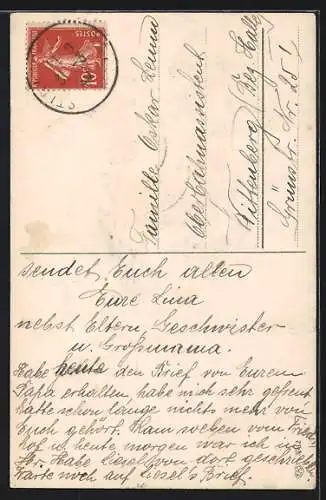 POSTES
10
Familie Oskar
Oberbahnassistent
Wittenberg Bez Halle
Grünstr. Nr. 25!
sendet Euch allen
Eure Lina
nebst Eltern, Geschwister
u. Großmama.
Habe heute den Brief von Eurem
Papa erhalten, habe mich sehr gefreut
hatte schon lange nichts mehr von
Euch gehört. Kam soeben vom
hof u. heute morgen war ich in
Habe Liesel von dort geschrieben
warte noch auf Liesel's Brief.